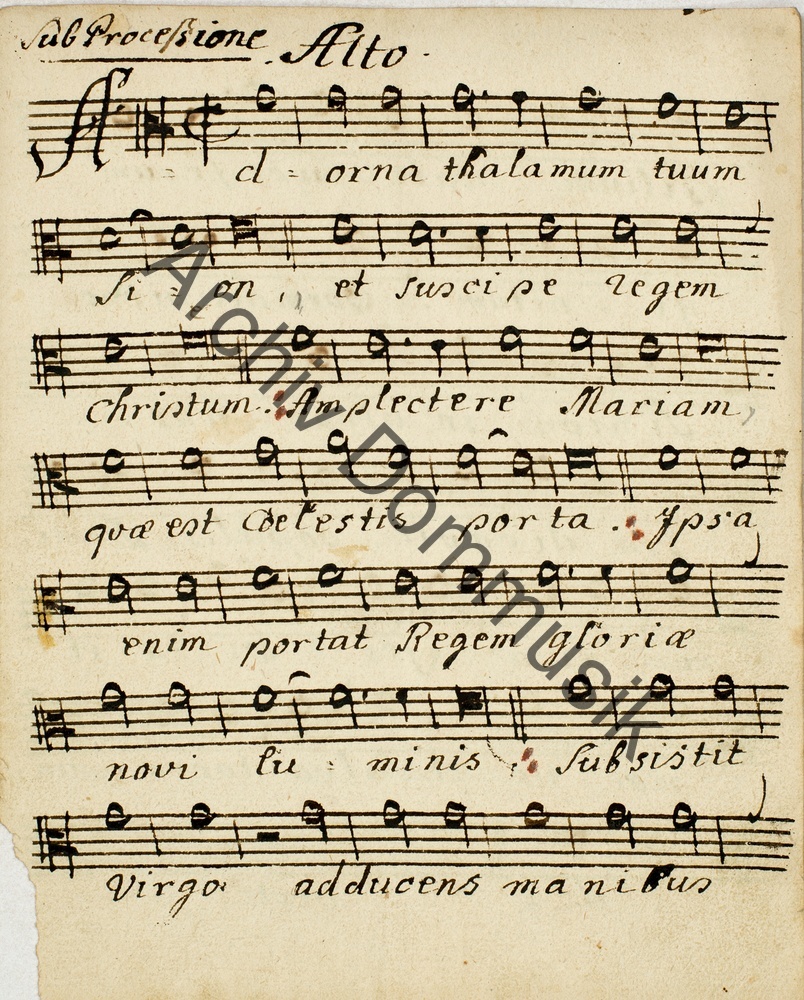 Sub Processione . Alto .
A = d = orna thalamum tuum
Si = on, et suscipe Regem
Christum. Amplectere Mariam,
quæ est Coelestis porta. Ipsa
enim portat Regem gloriæ
novi lu = minis. Subsistit
Virgo adducens manibus
Archiv Dommusik